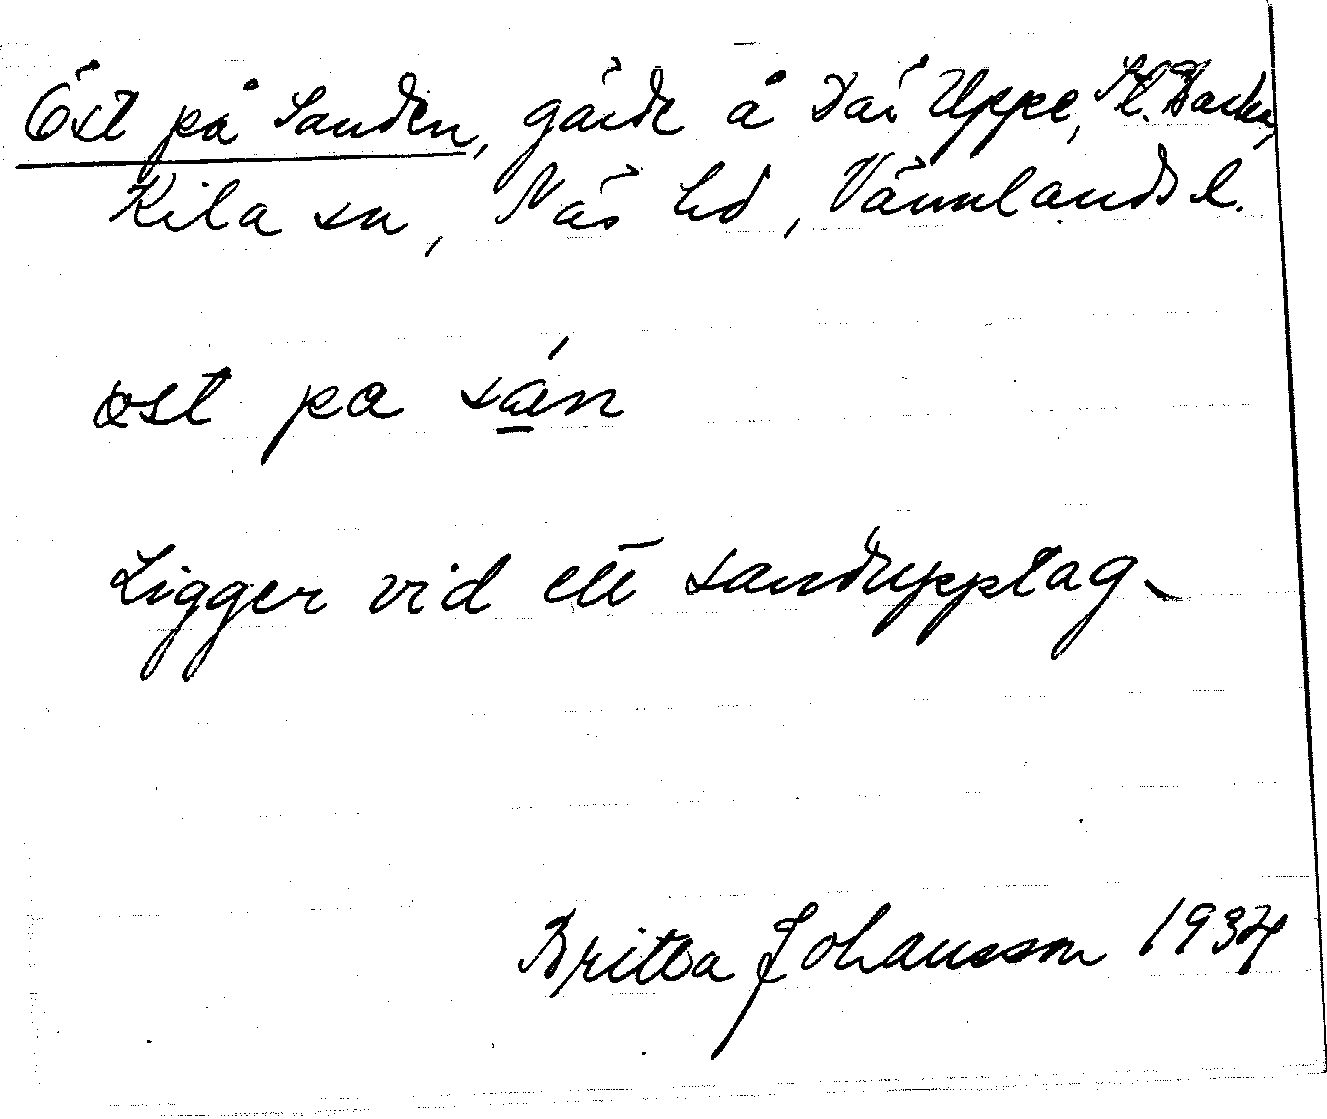 Öst på Sanden, gärde å Där Uppe, St. Backa,
Kila sn, Näs hd, Värmlands l.
øst pa sán
Ligger vid ett sandupptag.
Britta Johansson 1934